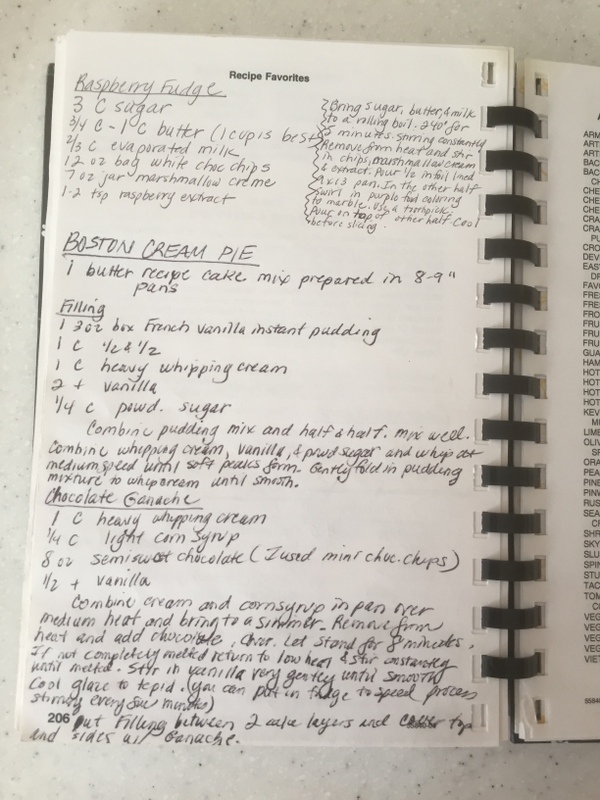 Recipe Favorites
Raspberry Fudge
3 C sugar
3/4 C - 1 C butter (1 cup is best)
2/3 C evaporated milk
12 oz bag white choc chips
7 oz jar marshmallow creme
1-2 tsp raspberry extract
Bring sugar, butter, & milk
to a rolling boil. 240° for
5 minutes. stirring constantly
Remove from heat and stir
in chips, marshmallow cream
& extract. Pour 1/2 in foil lined
9x13 pan. In the other half
swirl in purple food coloring
to marble. Use a toothpick.
Pour on top of other half. Cool
before slicing.
BOSTON CREAM PIE
1 butter recipe cake mix prepared in 8-9"
pans
Filling
1 3oz box French Vanilla instant pudding
1 C 1/2 & 1/2
1 C heavy whipping cream
2 t vanilla
1/4 C powd. sugar
Combine pudding mix and half & half. mix well.
Combine whipping cream, vanilla, & powd sugar and whip at
medium speed until soft peaks form. Gently fold in pudding
mixture to whip cream until smooth.
Chocolate Ganache
1 C heavy whipping cream
1/4 C light corn syrup
8 oz semisweet chocolate (I used mini choc. chips)
1/2 t vanilla
Combine cream and cornsyrup in pan over
medium heat and bring to a simmer. Remove from
heat and add chocolate. Let stand for 8 minutes.
If not completely melted return to low heat & stir constantly
until melted. Stir in vanilla very gently until smooth
Cool glaze to tepid. (you can put in fridge to speed process
stirring every few minutes)
206 Put Filling between 2 cake layers and cover top
and sides w/ Ganache.
ARM
ART
ART
BAC
BAC
CHE
CHE
CRA
CRA
CRO
DEV
EAS
FAV
FRE
FRE
FRU
FRU
FRU
GUA
HAM
HOT
HOT
HOT
KEY
LIME
OLIV
ORA
PEA
PINE
PINW
RUS
SEA
SHR
SKY
SLU
SPIN
STU
TAC
TOM
VEG
VEG
VEG
VIET